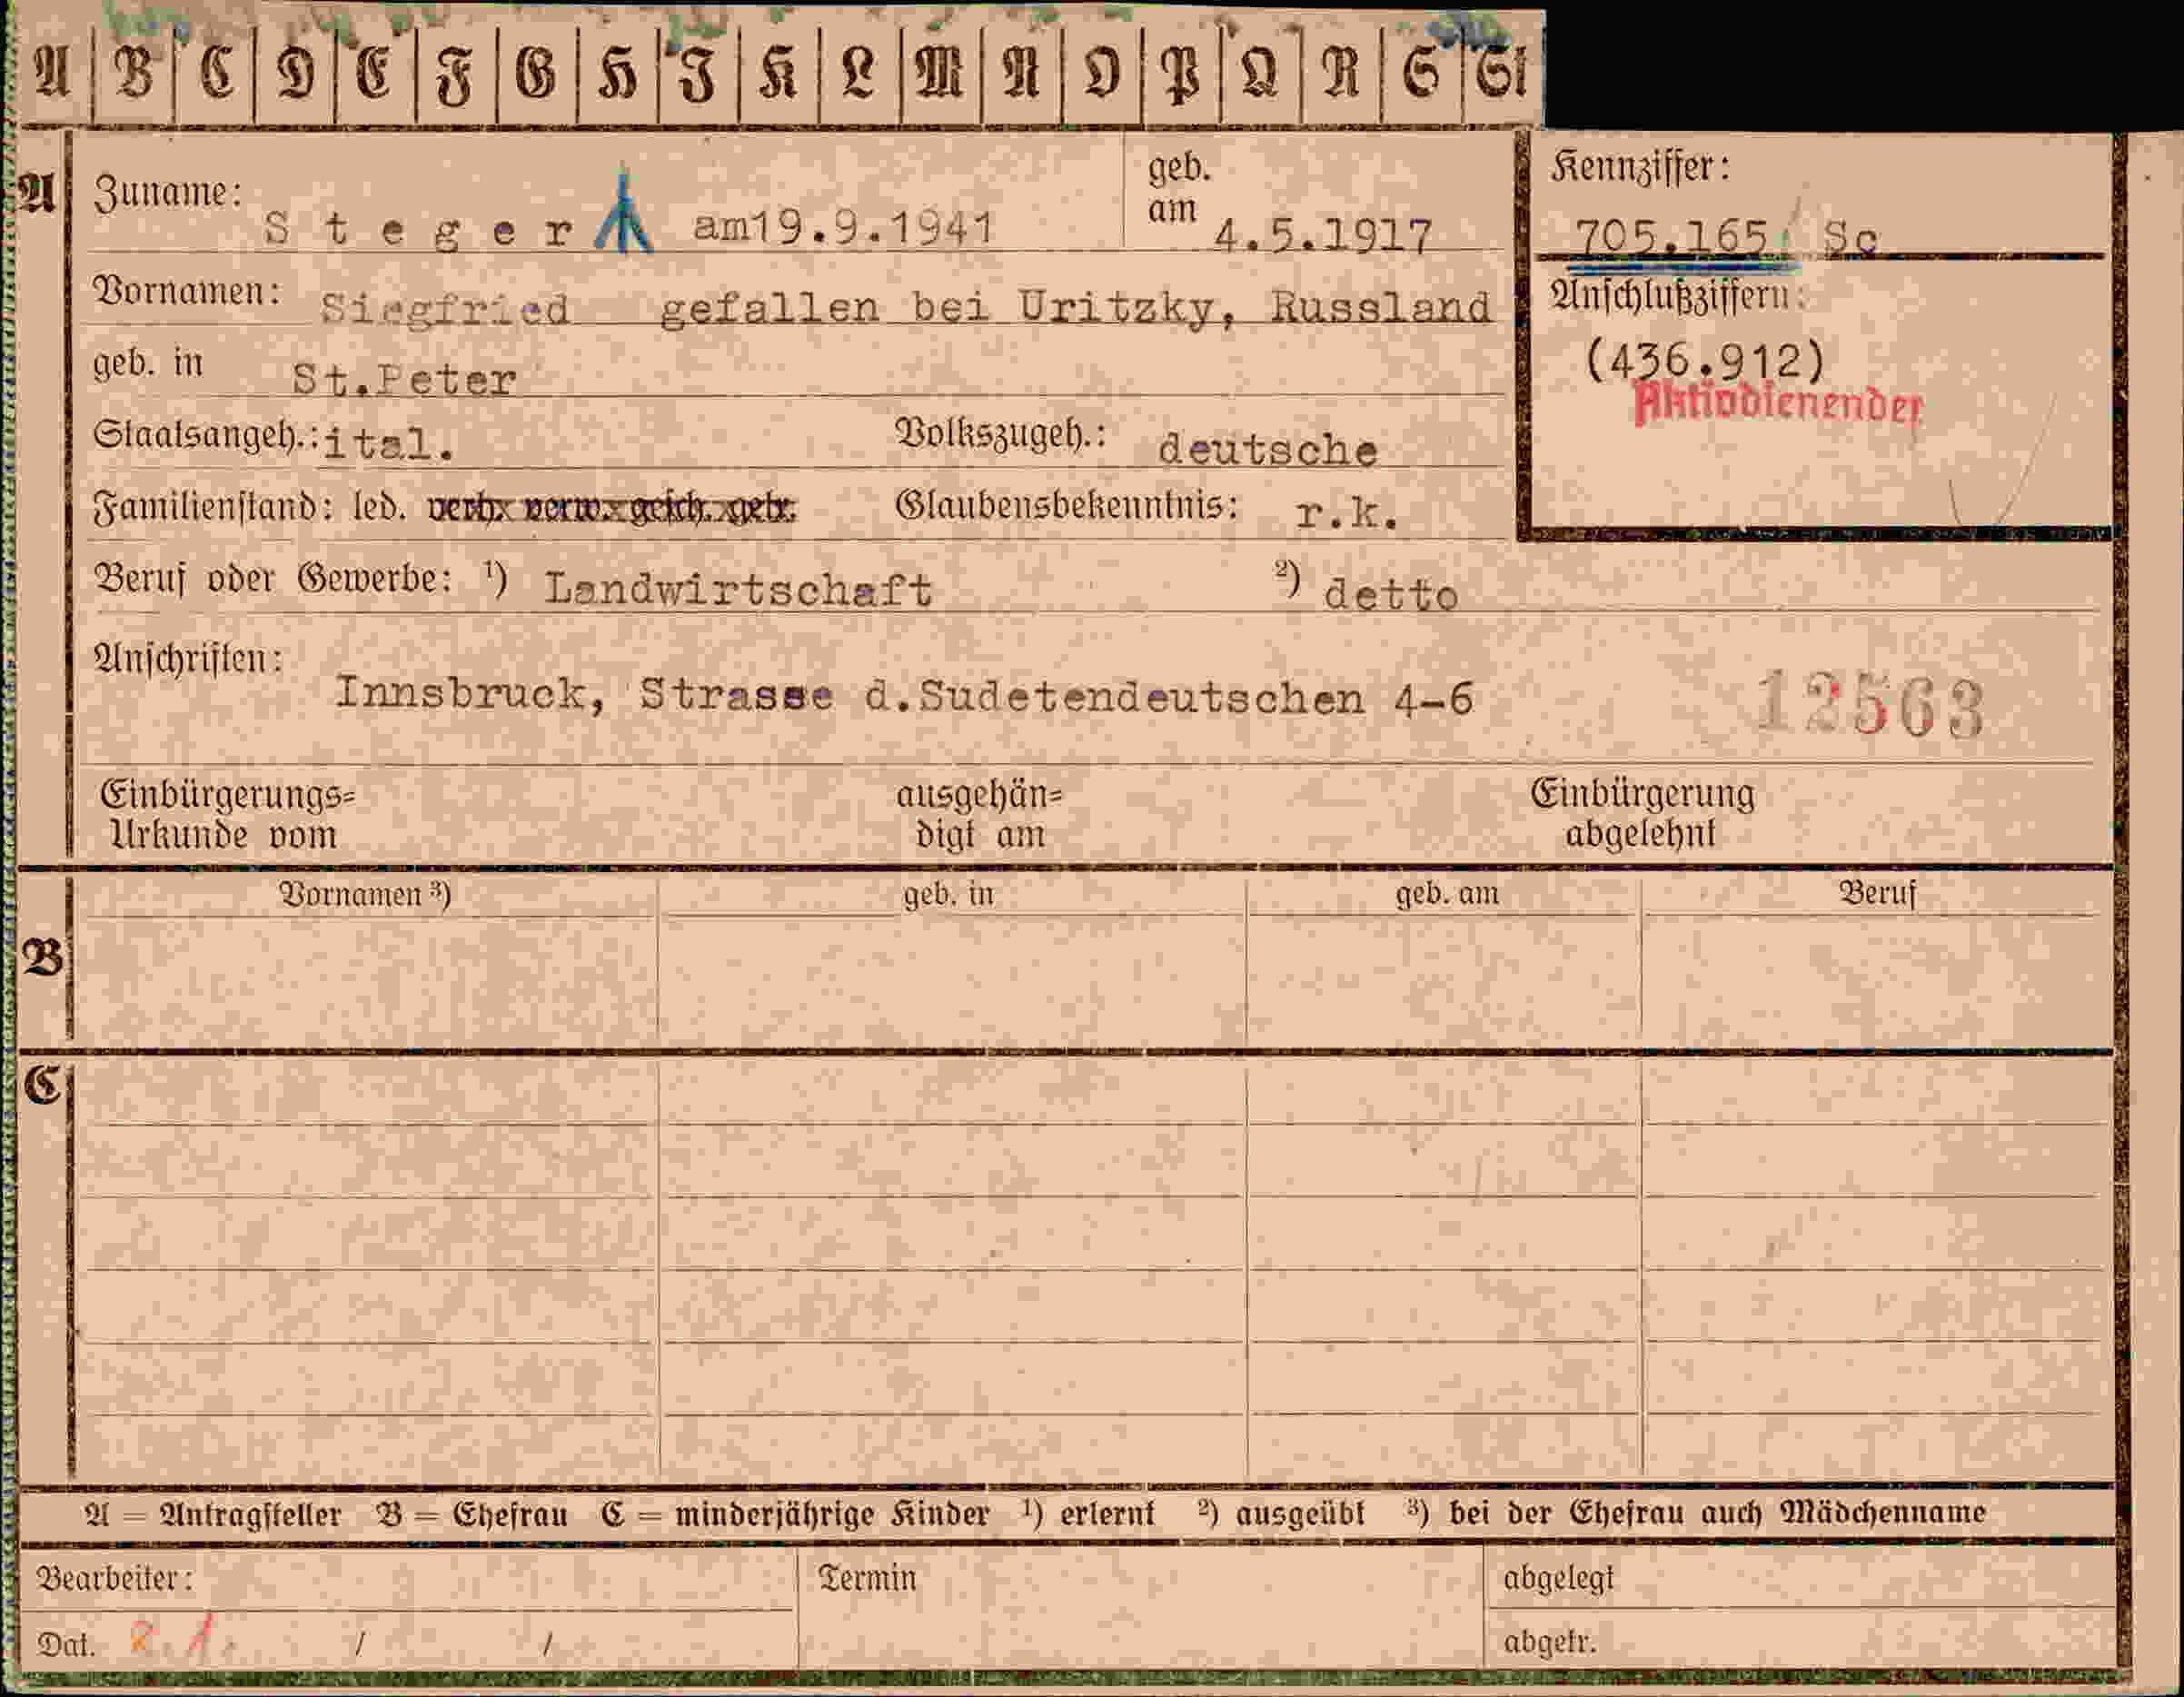 A B C D E F G H J K L M N O P Q R S St
A Zuname: Steger am19.9.1941 geb. am 4.5.1917
Kennziffer: 705.165 Sc
Vornamen: Siegfried gefallen bei Uritzky, Russland
Anschlußziffern:
(436.912)
Aktivdienender
geb. in St.Peter
Staatsangeh.: ital. Volkszugeh.: deutsche
Familienstand: led. verh. verw. gesch. getr. Glaubensbekenntnis: r.k.
Beruf oder Gewerbe: ¹) Landwirtschaft ²) detto
Anschriften: Innsbruck, Strasse d.Sudetendeutschen 4-6 12563
Einbürgerungs=
Urkunde vom
ausgehän=
digt am
Einbürgerung
abgelehnt
B Vornamen ³) geb. in geb. am Beruf
C
A = Antragsteller B = Ehefrau C = minderjährige Kinder ¹) erlernt ²) ausgeübt ³) bei der Ehefrau auch Mädchenname
Bearbeiter: Termin abgelegt
Dat. 2.1. / / abgetr.